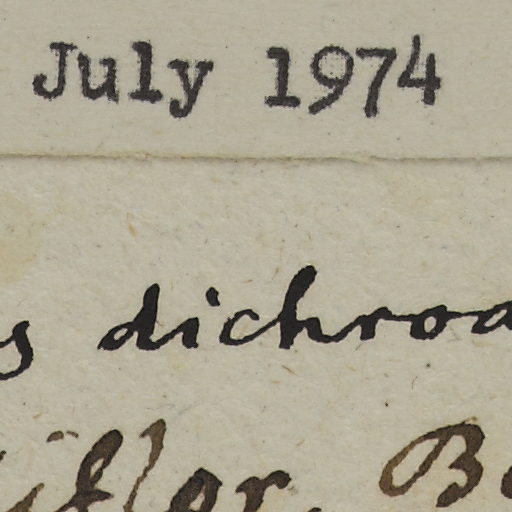 July 1974
s dichroa
flor. B